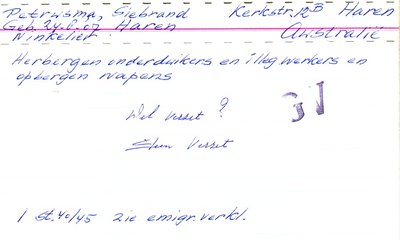 Petrusma, Siebrand Kerkstr. 12B Haren
Geb. 24.6.07 Haren Australië
Winkelier
Herbergen onderduikers en illeg. werkers en
opbergen wapens
Wel verzet ?
Geen Verzet
GN
1 st. 40/45 zie emigr. verkl.